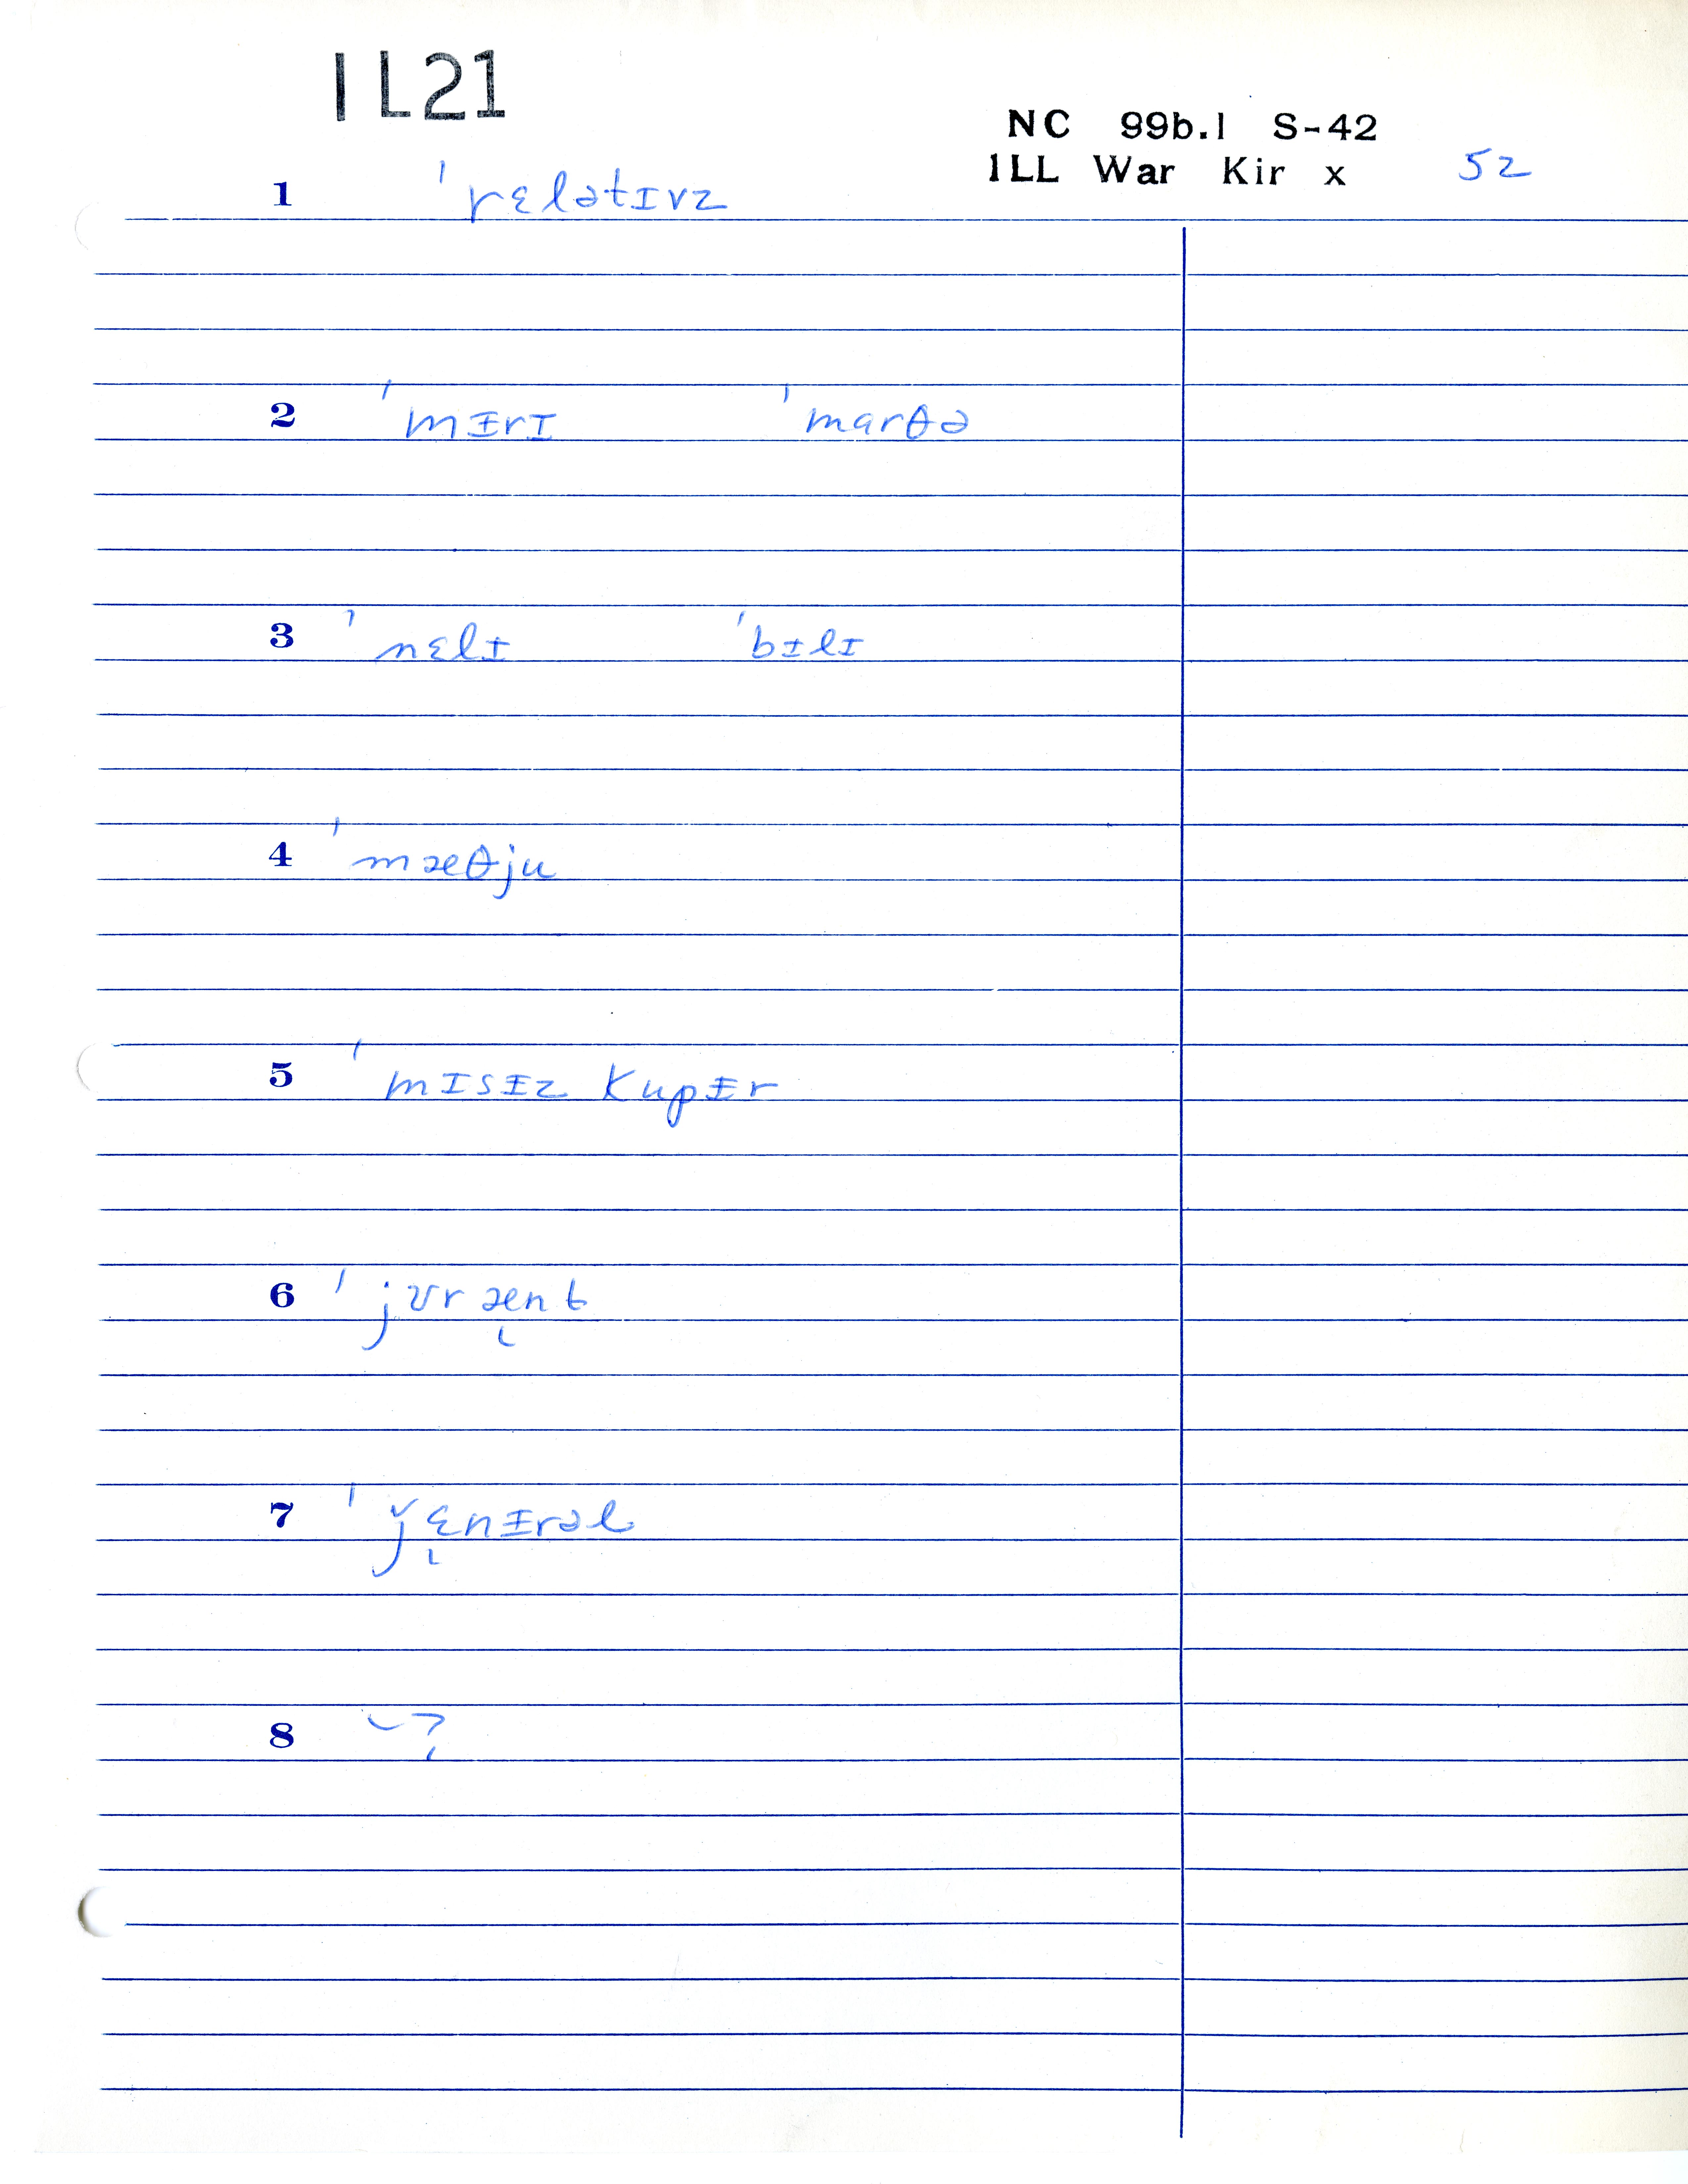 IL21
NC 99b.1 S-42
ILL War Kir x 52
1 ˈrɛlətɪvz
2 ˈmɨrɪ ˈmarθə
3 ˈnɛlɨ ˈbɨlɪ
4 ˈmæθju
5 ˈmɪsɨz kupɨr
6 ˈjʊræ̨nt
7 ˈǰɛ̨nɨrəl
8 ⌣ ?